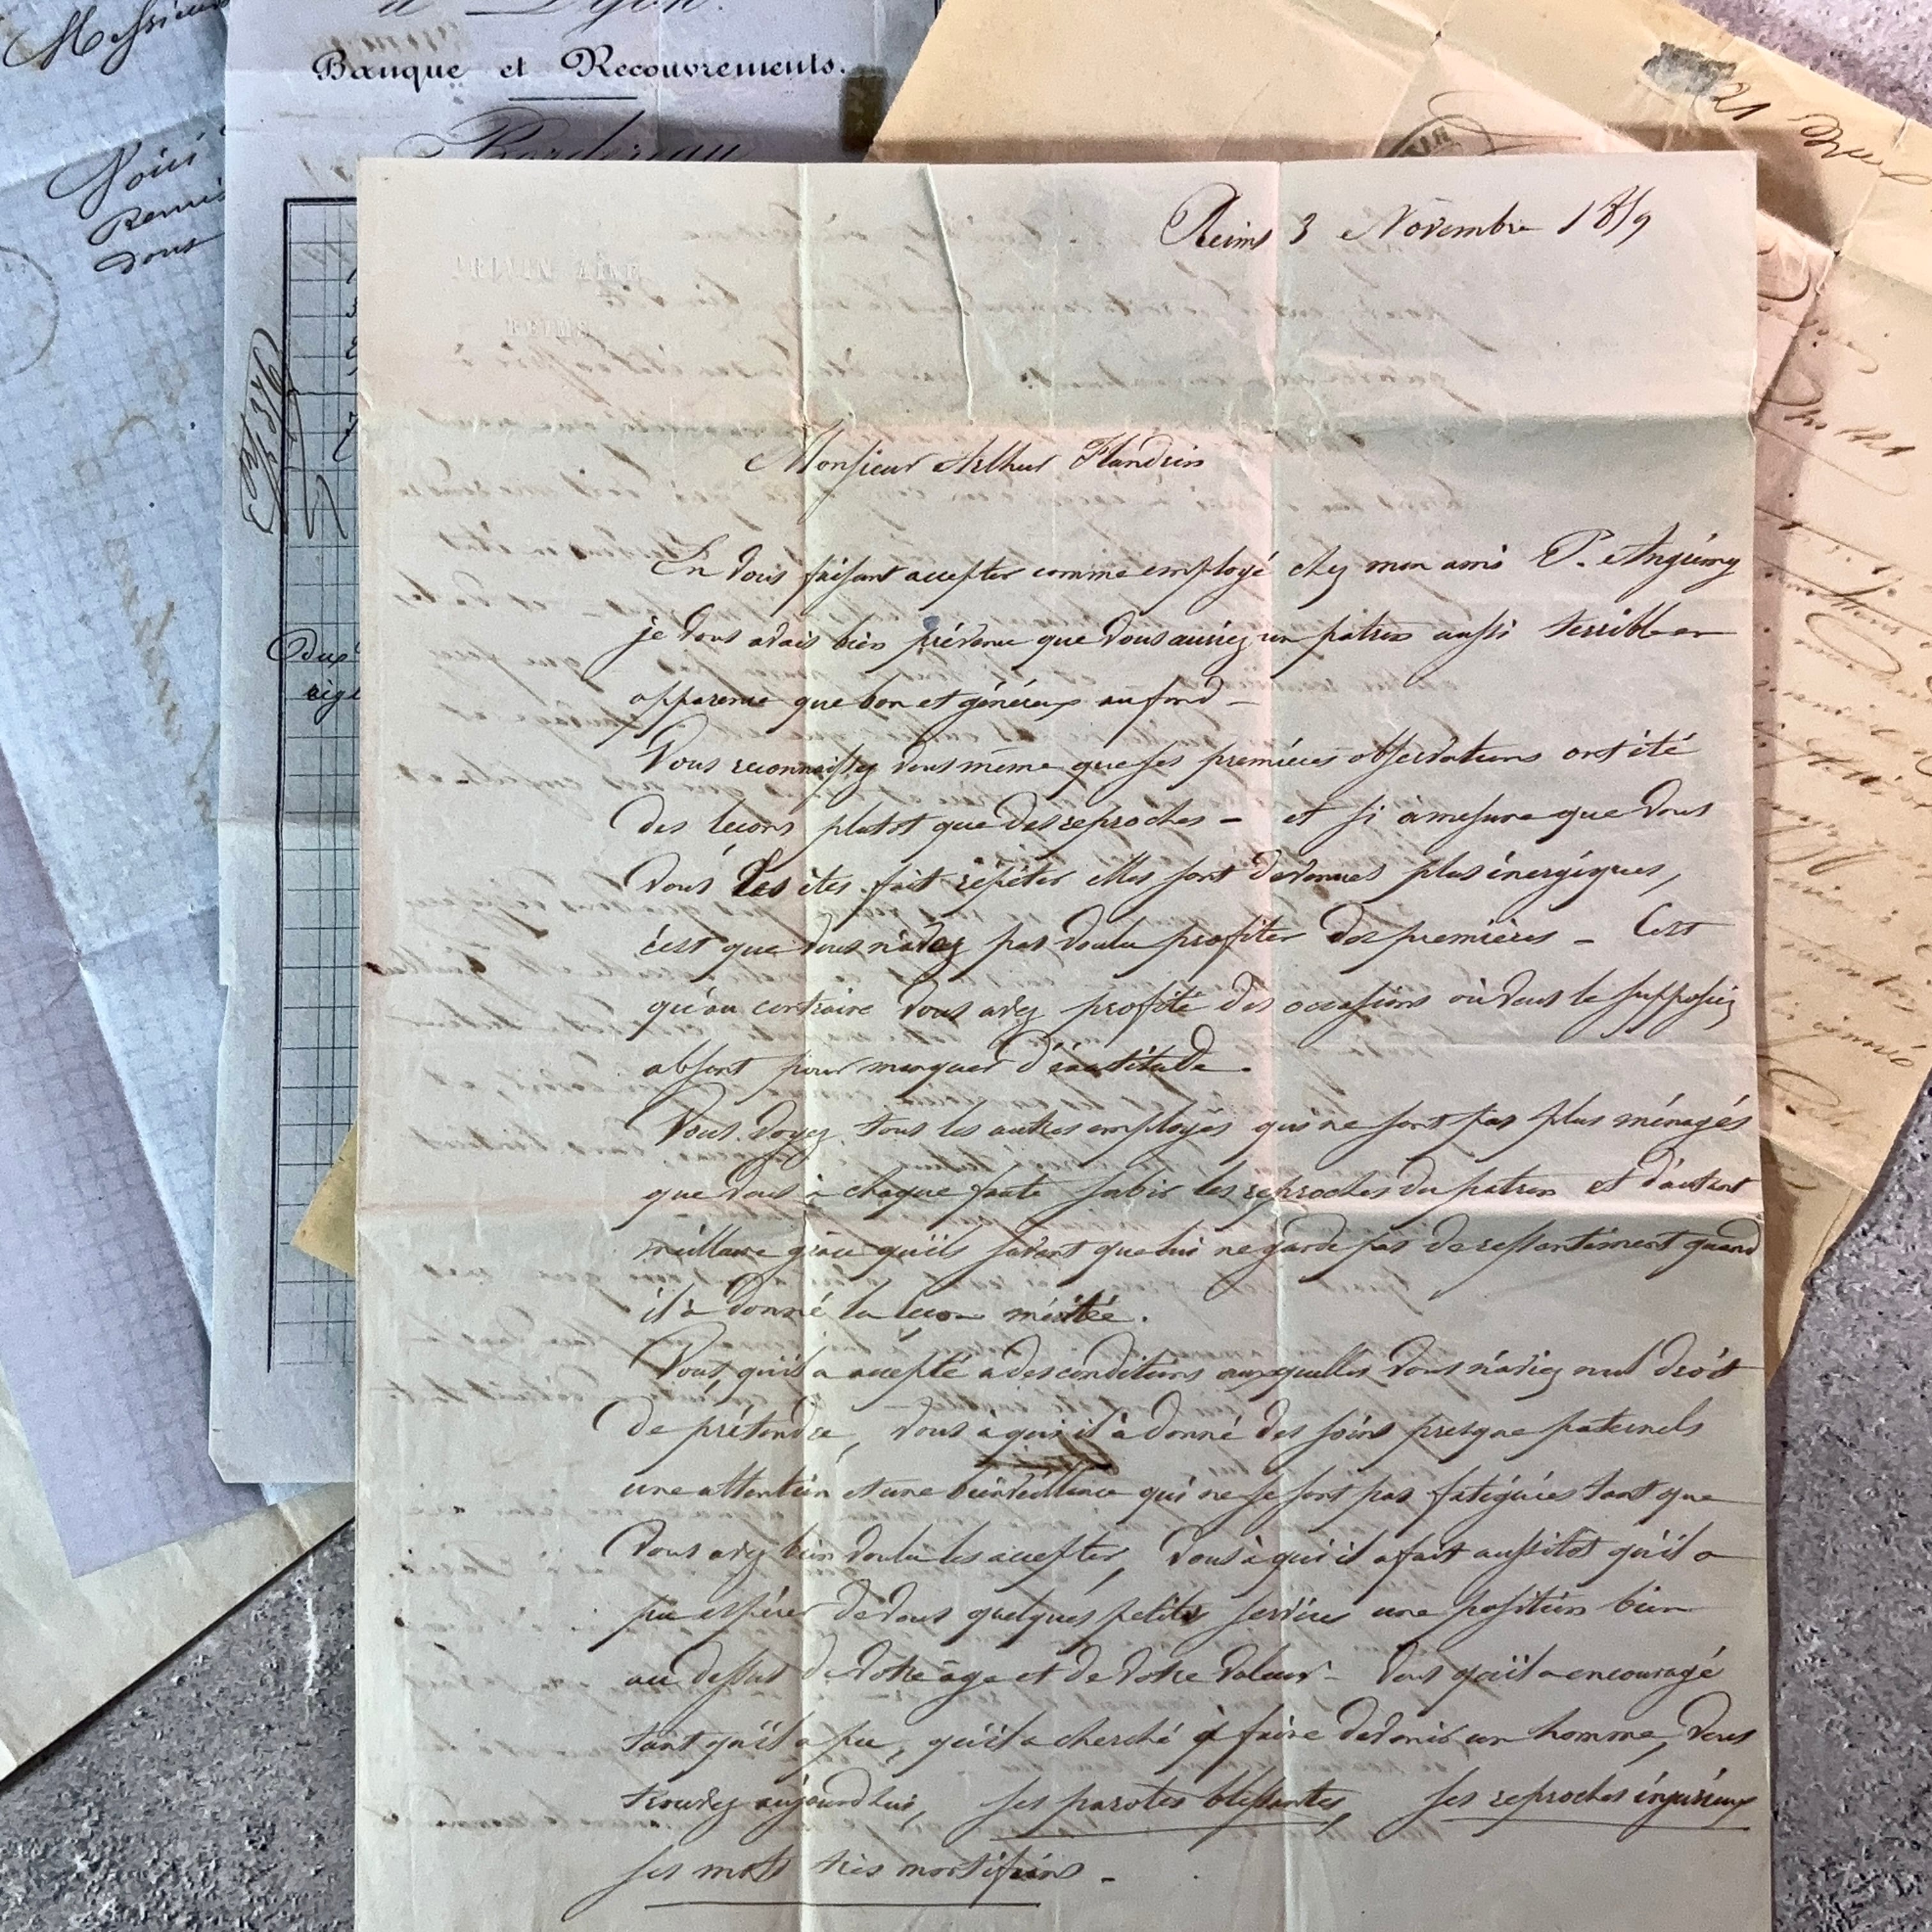 Messieurs
Voici
Remis
dont
à Dijon.
Banque et Recouvrements.
Bordereau
21
Reims 3 Novembre 1859
REIMS
Monsieur Arthur Flandrin
En vous faisant accepter comme employé chez mon ami P. Anguiny
je vous avais bien prévenu que vous auriez un patron aussi terrible en
apparence que bon et généreux au fond –
Vous reconnaissez vous même que ses premières observations ont été
des leçons plutot que des reproches – et si à mesure que vous
vous les êtes fait répéter elles sont devenues plus énergiques,
c'est que vous n'avez pas voulu profiter des premieres – C'est
qu'au contraire vous avez profité des occasions où vous le supposiez
absent pour manquer d'éxactitude.
Vous voyez tous les autres employés qui ne sont pas plus ménagés
que vous à chaque faute subir les reproches du patron et d'autant
meilleure grâce qu'ils savent que lui ne garde pas de ressentiment quand
il à donné la leçon méritée.
Vous, qu'il a accepté a des conditions auxquelles vous n'aviez nul droit
de prétendre, vous à qui il à donné des soins presque paternels
une attention et une bienveillance qui ne se sont pas fatiguées tant que
vous avez bien voulu les accepter, vous à qui il a fait aussitot qu'il a
pu espérer de vous quelques petits services une position bien
au dessus de votre âge et de votre valeur – vous qu'il a encouragé
tant qu'il a pu, qu'il a cherché à faire devenir un homme, vous
trouvez aujourd'hui, ses paroles blessantes, ses reproches injurieux
ses mots très mortifians –